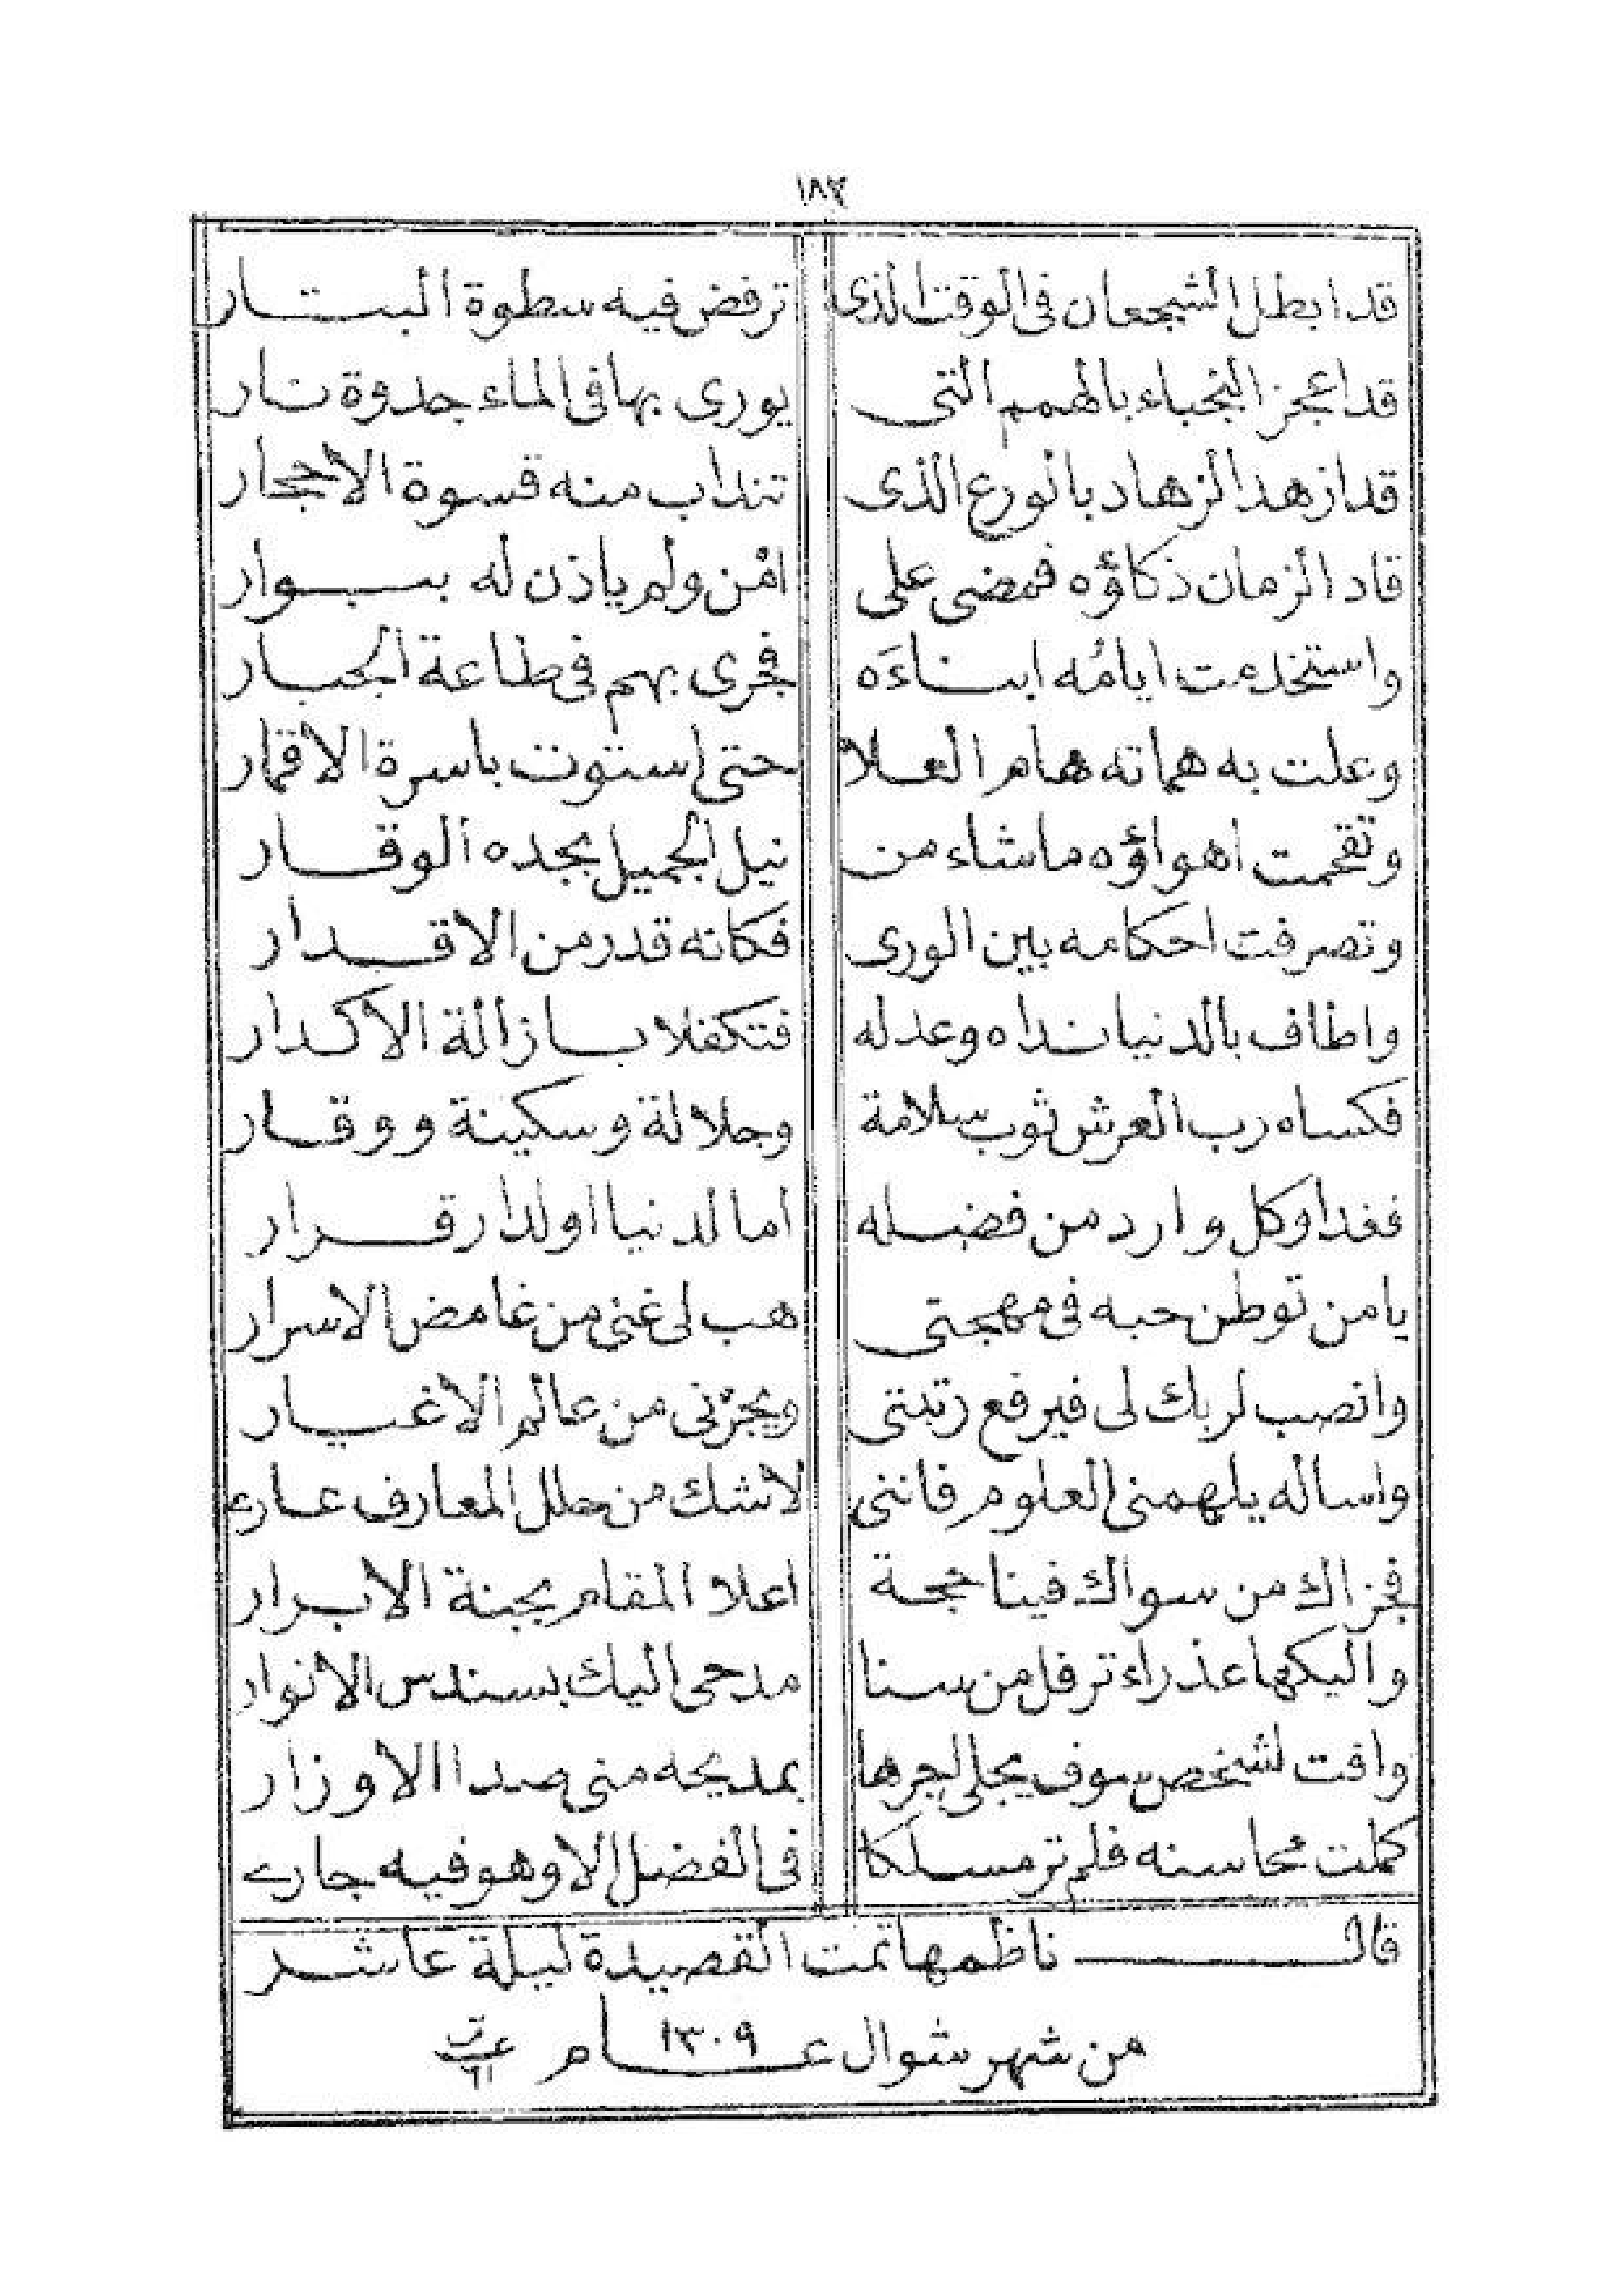 ١٨٣
قد ابطل الشجعان فى الوقت الذى ترفض فيه سطوة البتار
قد اعجز النجباء بالهمم التى يورى بها فى الماء جدوة نار
قد ازهد الزهاد بالورع الذى تنداب منه قسوة الاحجار
قاد الزمان ذكاؤه فمضى على امن ولم ياذن له ببوار
واستخدمت ايامُه ابناءَه فجرى بهم فى طاعة الجبار
وعلت به هماته هام العلا حتى استوت باسرة الاقمار
وتقحمت اهواؤه ما شاء من نيل الجميل بجده الوقار
وتصرفت احكامه بين الورى فكانه قدر من الاقدار
واطاف بالدنيا نداه وعدله فتكفلا بازالة الاكدار
فكساه رب العرش ثوب سلامة وجلالة وسكينة ووقار
فغدا وكل وارد من فضله اما لدنيا او لدار قرار
يا من توطن حبه فى مهجتى هب لى غنى من غامض الاسرار
وانصب لربك لى فيرفع رتبتى ويجرنى من عالم الاغيار
واساله يلهمنى العلوم فاننى لاشك من حلل المعارف عارى
فجزاك من سواك فينا حجة اعلا المقام بجنة الابرار
واليكها عذراء ترفل من سنا مدحى اليك بسندس الانوار
وافت لشخص سوف يجلى اجرها بمديحه منى صدا الاوزار
كملت محاسنه فلم تر مسلكا فى الفضل الا وهو فيه جارى
قال ناظمها تمت القصيدة ليلة عاشر
من شهر شوال عام ١٣٠٩